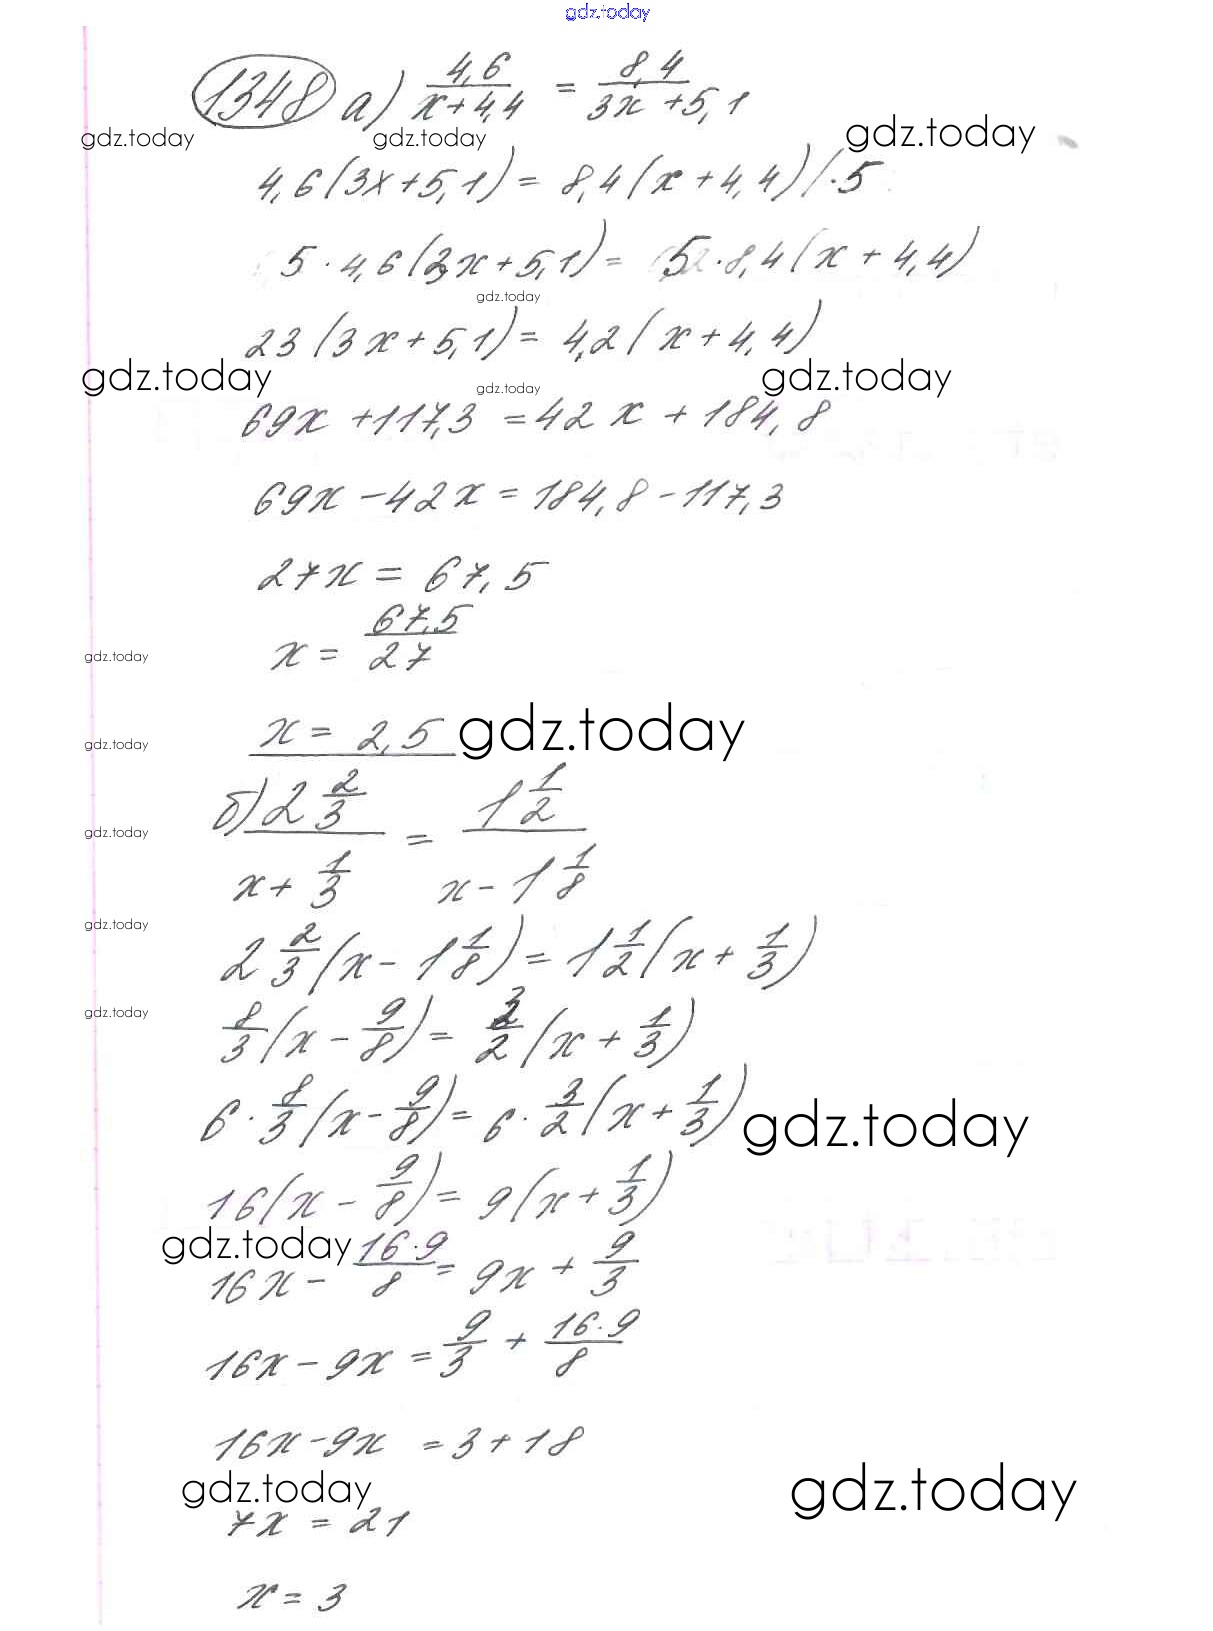 gdz.today
1348 а) 4,6/(x+4,4) = 8,4/(3x+5,1)
gdz.today gdz.today gdz.today
4,6(3x+5,1) = 8,4(x+4,4) /·5
5·4,6(3x+5,1) = 5·8,4(x+4,4)
gdz.today
23(3x+5,1) = 4,2(x+4,4)
gdz.today gdz.today gdz.today
69x+117,3 = 42x+184,8
69x-42x = 184,8-117,3
27x = 67,5
x = 67,5/27
gdz.today
x = 2,5 gdz.today
gdz.today
б) 2 2/3 / (x+1/3) = 1 1/2 / (x-1 1/8)
gdz.today
gdz.today
2 2/3(x-1 1/8) = 1 1/2(x+1/3)
8/3(x-9/8) = 3/2(x+1/3)
gdz.today
6·8/3(x-9/8) = 6·3/2(x+1/3) gdz.today
16(x-9/8) = 9(x+1/3)
gdz.today
16x-16·9/8 = 9x+9/3
16x-9x = 9/3+16·9/8
16x-9x = 3+18
gdz.today gdz.today
7x = 21
x = 3